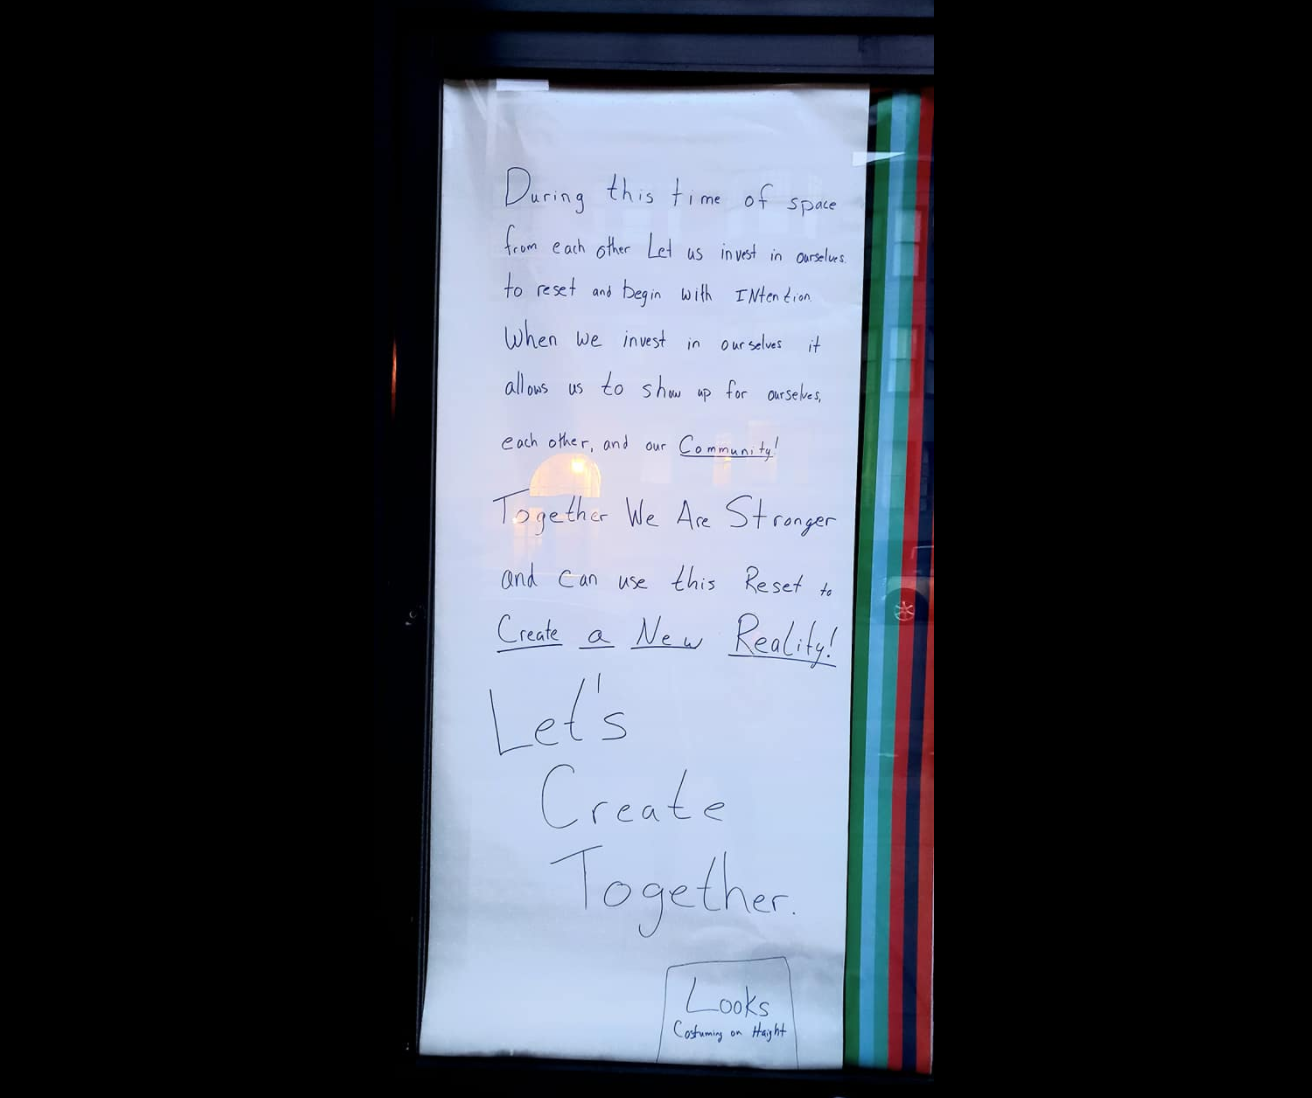 During this time of space
from each other Let us invest in ourselves
to reset and begin with INtention
When we invest in ourselves it
allows us to show up for ourselves,
each other, and our Community!
Together We Are Stronger
and can use this Reset to
Create a New Reality!
Let's
Create
Together.
Looks
Costuming on Haight